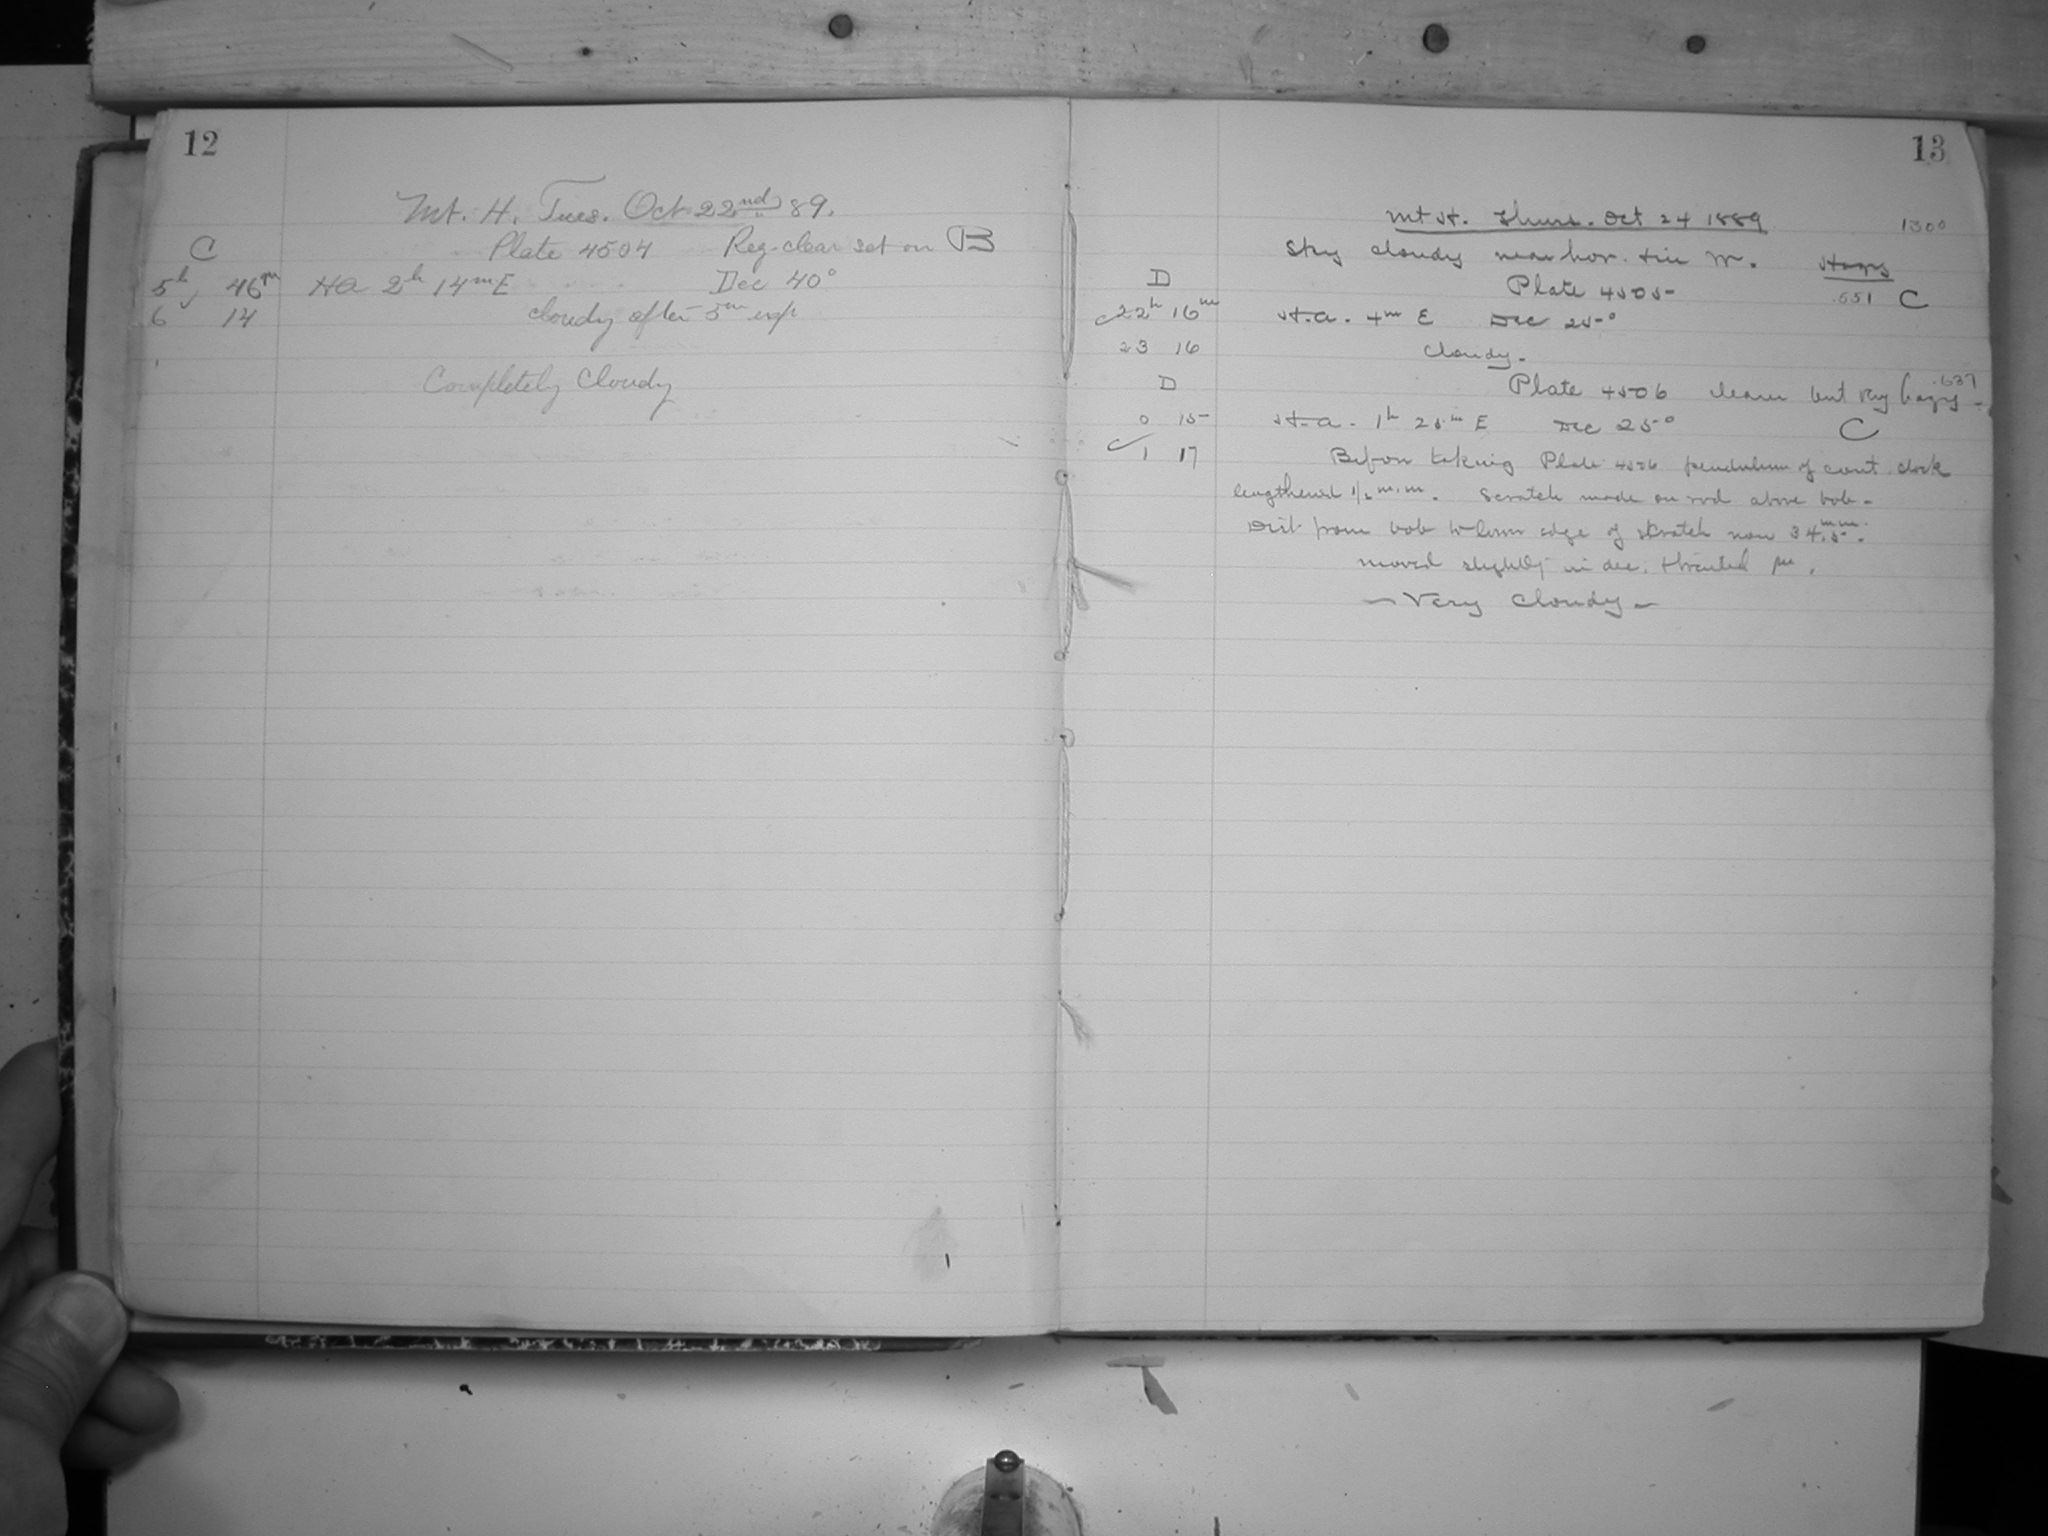 12
Mt. H. Tues. Oct 22nd 89.
C Plate 4504 Reg. clear set on B
5h 46m HA 2h 14m E Dec 40°
6 14 cloudy after 5m exp
Completely Cloudy
13
Mt H. Thurs. Oct 24 1889 1300
Sky cloudy near hor. Hazy
D Plate 4505 .551 C
22h 16m H.a. 4m E Dec 25°
23 16 Cloudy.
D Plate 4506 clearer but very hazy .637
0 15 H.a. 1h 25m E Dec 25° C
1 17 Before taking Plate 4506 pendulum of cont. clock
lengthened 1/2 m.m. Scratch made on rod above bob -
Dist from bob to lower edge of scratch now 34.5 m.m.
moved slightly in dec.
- Very Cloudy -